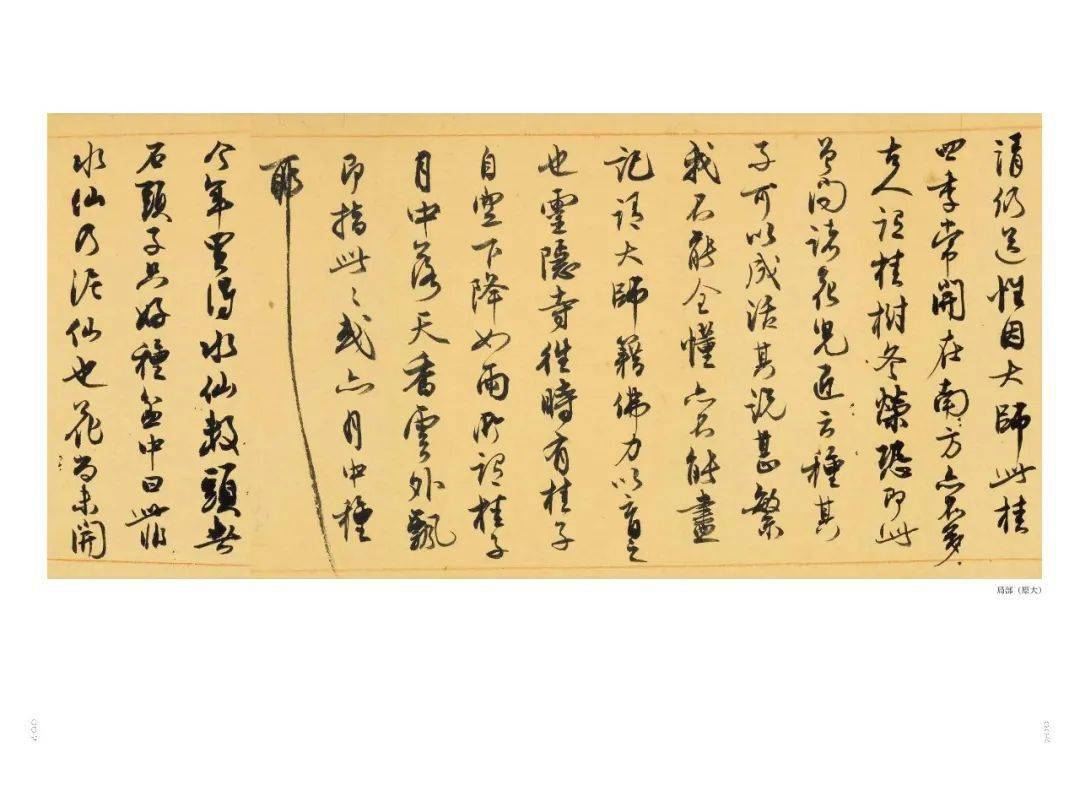 請仍送性因大師此桂
四季常開在南方亦不多
古人謂桂樹冬榮恐即此
曾问諸花兒匠云種其
子可以成活其説甚繁
我不能全懂亦不能盡
記請大師籍佛力以育之
也靈隱寺往時有桂子
自空下降如雨所謂桂子
月中落天香雲外飄
即指此此或亦月中種
耶
今年買得水仙數頭者
石頭子只好種盆中曰此非
水仙乃泥仙也花尚未開
局部（原大）